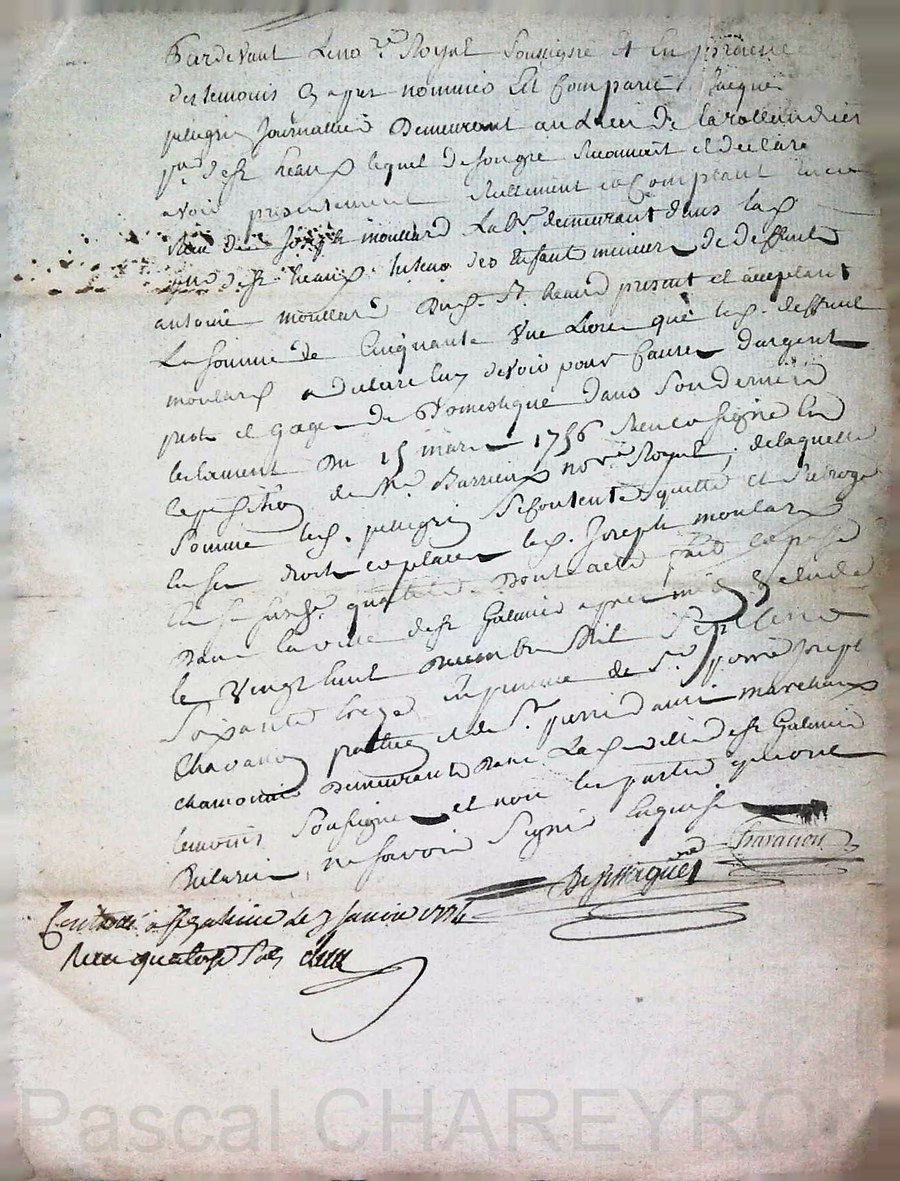 Pardevant Le no.re Royal Soussigné Et En presence
des temoins Cy apres nommés Est Comparu Jacques
pelegrin Journallier Demeurant au Lieu De la
p.sse De St heand lequel de Son gré Reconnoit et declare
avoir presentement Reellement et Comptant Receu
de Joseph moullard Lab.r demeurant dans lad.
p.sse de St heand tuteur des Enfants mineurs de deffunt
antoine moullard Dud. St heand present et acceptant
La Somme de Cinquante Une Livre que led. deffunt
moullard a declaré luy devoir pour Cause d'argent
preté et gages de Domestique dans Son dernier
testament Du 15 mars 1756 Receu et Signé En
Expedition de M.e Barrieux no.re Royal, de laquelle
Somme led. pelegrin Se Contente quitte et Subroge
En Ses droits et places led. Joseph moulard
En Sa qualité. Dont acte fait et passé
Dans la ville de St Galmier apres midy L'etude
le Vingt huit decembre Mil Sept Cent
Soixante treze En presence de S.r pierre Joseph
Chavanon praticien et de S.r pierre marchand
chamoinier Demeurants Dans Lad. ville de St Galmier
temoins Soussignés et non les parties qui ont
Declaré ne Savoir Signer Enquises
Chavanon
Contrôlé a St galmier le 7 Janvier 1774
Receu quatorze Sols
Pascal CHAREYRON